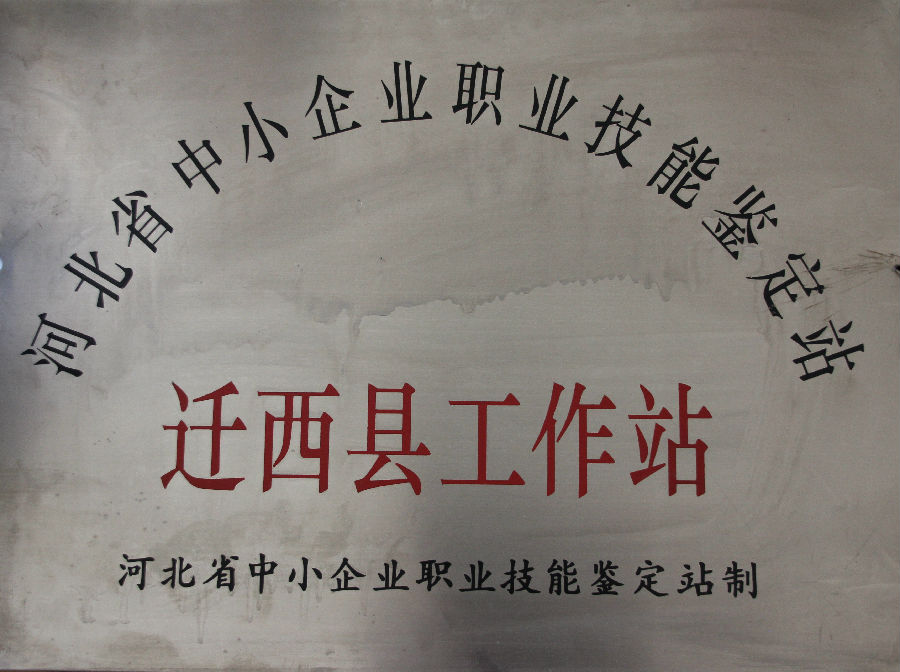 河北省中小企业职业技能鉴定站
迁西县工作站
河北省中小企业职业技能鉴定站制